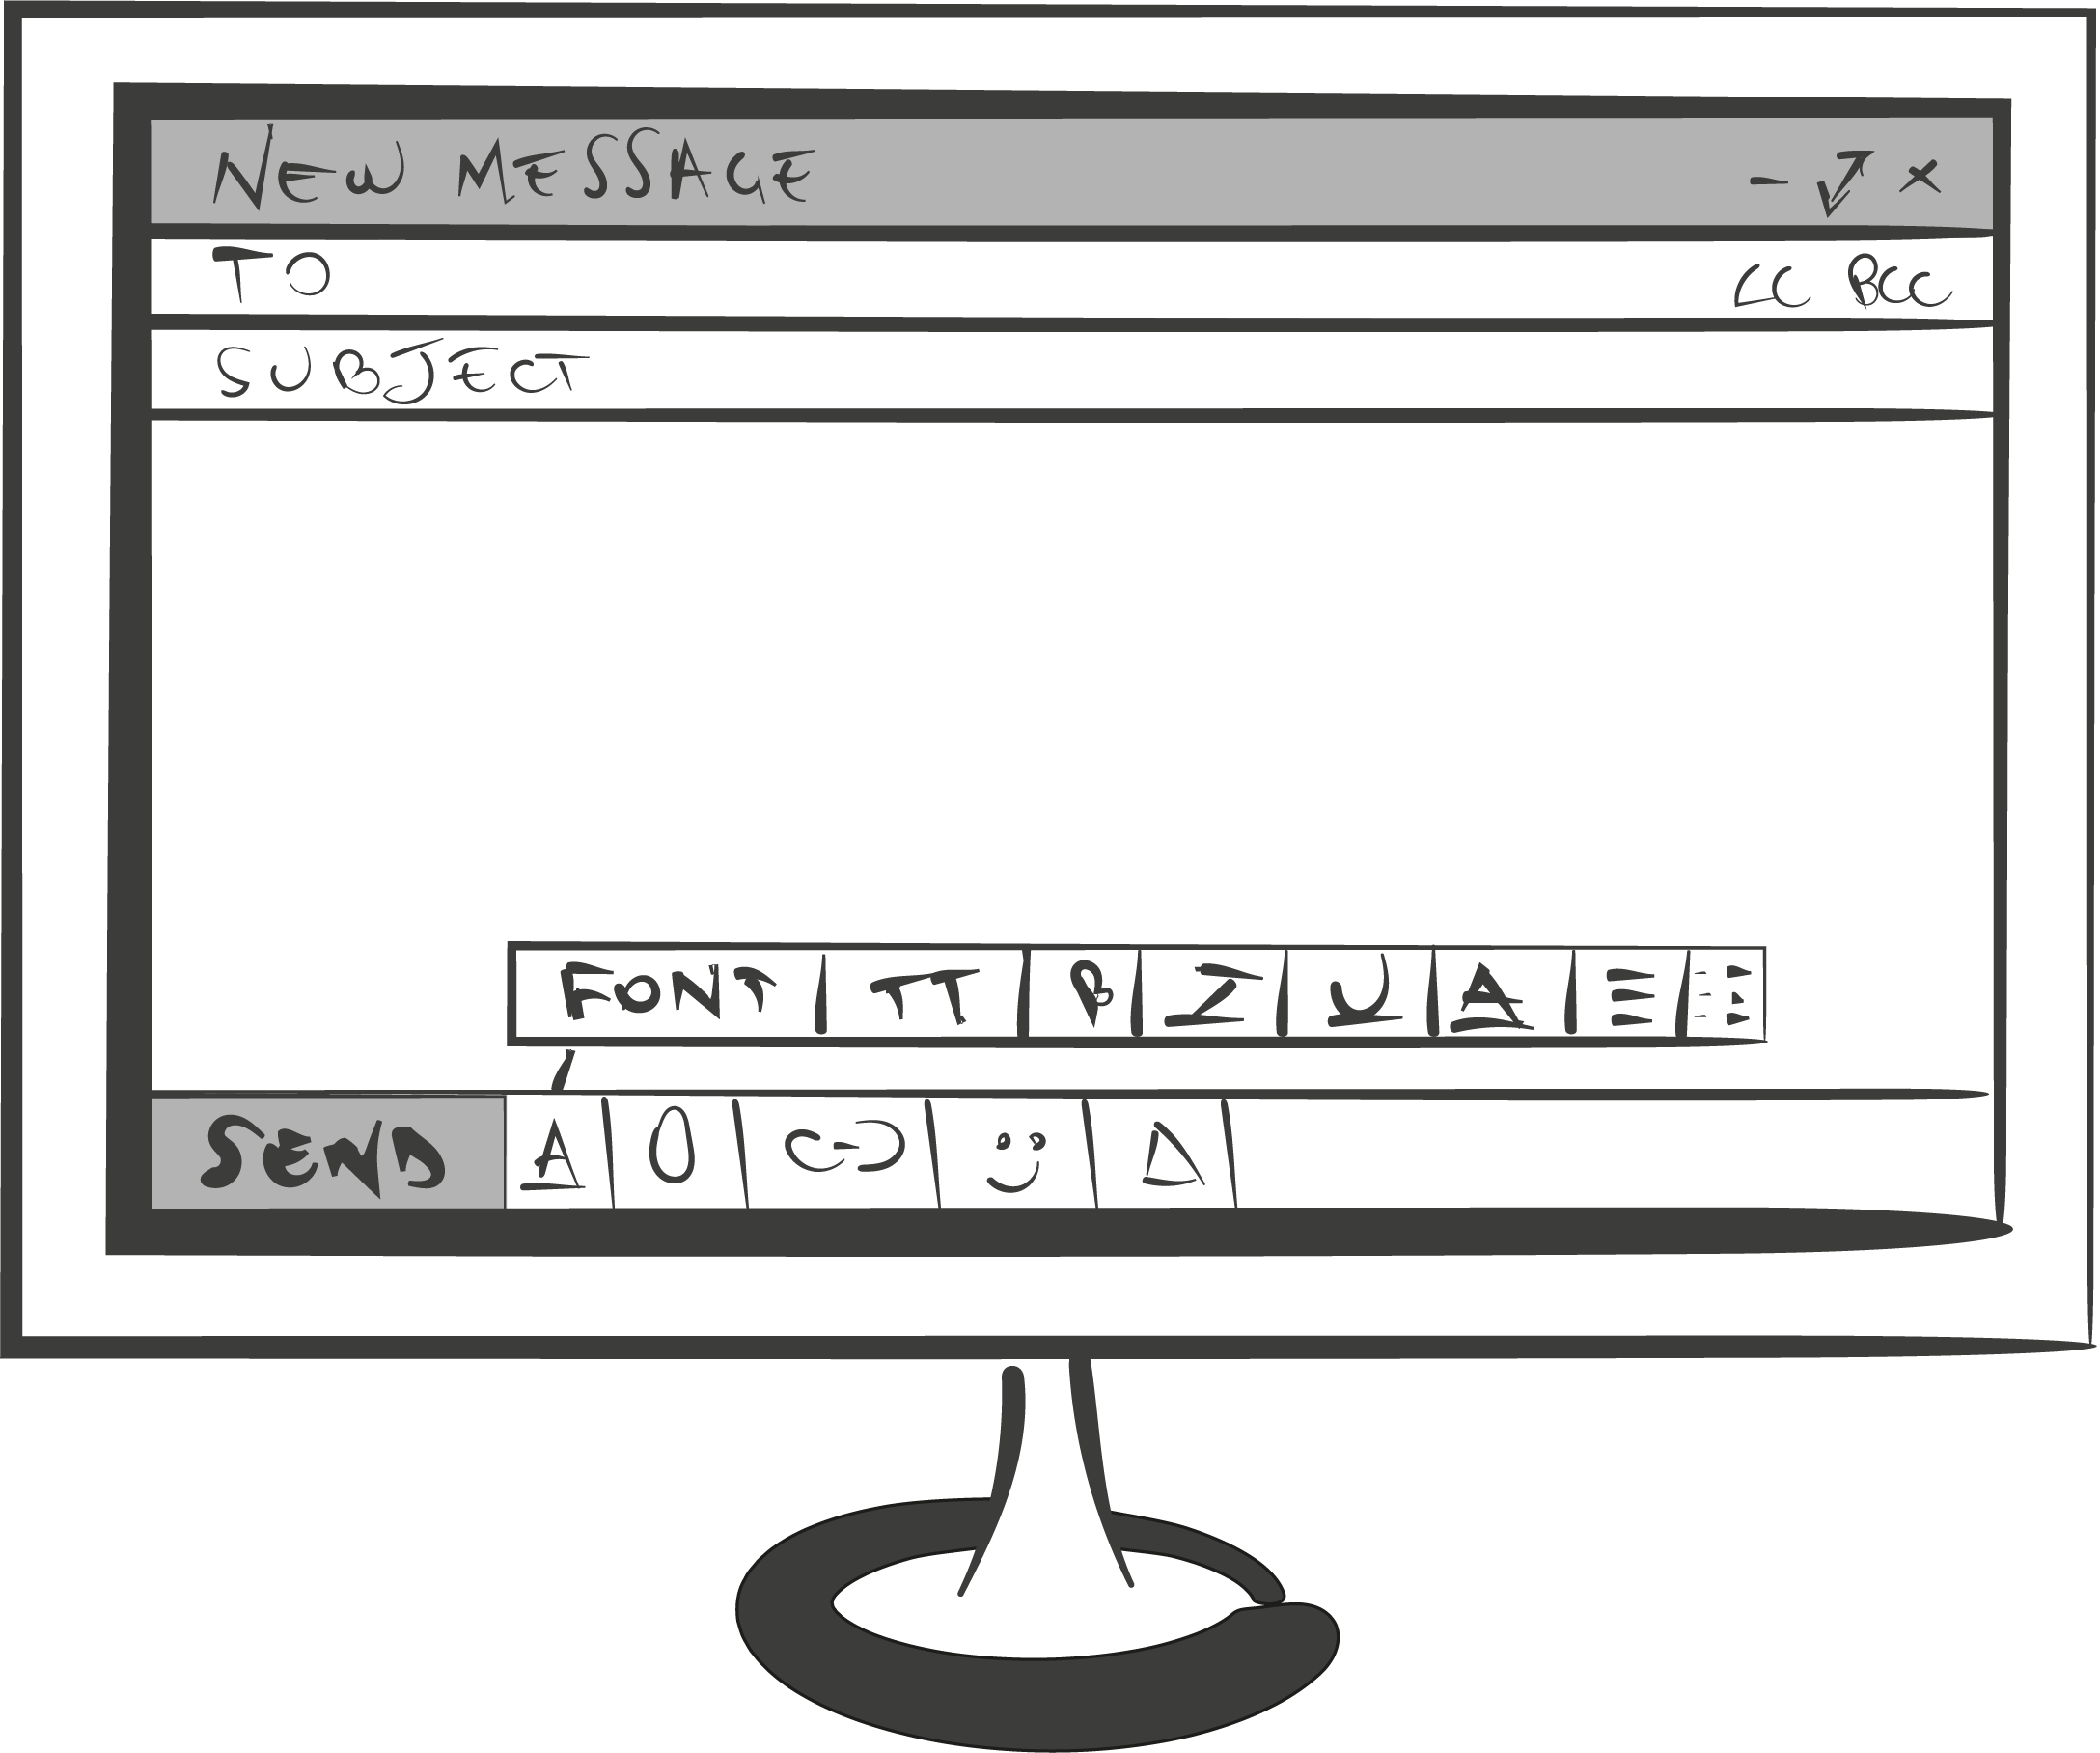 NEW MESSAGE
TO CC BCC
SUBJECT
FONT TT B I U A
SEND A